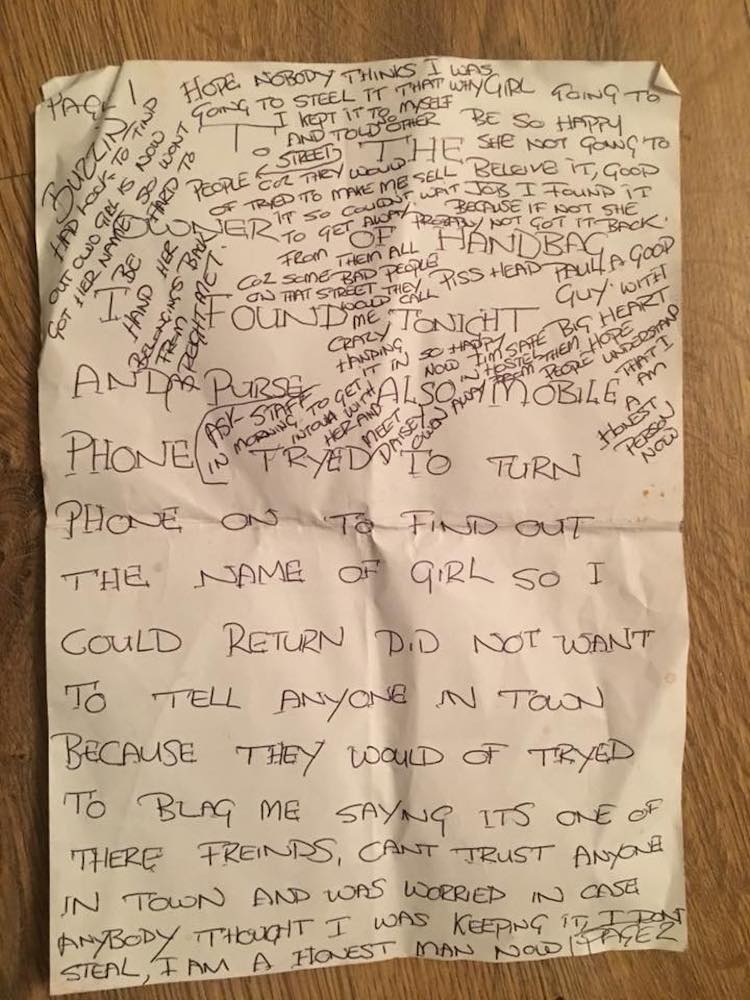 PAGE 1
HOPE NOBODY THINKS I WAS
GOING TO STEEL IT THAT WHY
I KEPT IT TO MYSELF
AND TOLD OTHER
STREET
PEOPLE COZ THEY WOULD
OF TRYED TO MAKE ME SELL
IT SO COULDN'T WAIT
TO GET AWAY
FROM THEM ALL
COZ SOME BAD PEOPLE
ON THAT STREET THEY
WOULD CALL
ME
CRAZY
HANDING
IT IN SO HAPPY
NOW I'M SAFE
IN HOSTEL THEM
AWAY FROM PEOPLE HOPE
UNDERSTAND
THAT I
AM
A
HONEST
PERSON
NOW
GIRL GOING TO
BE SO HAPPY
SHE NOT GOING TO
BELEIVE IT, GOOD
JOB I FOUND IT
BECAUSE IF NOT SHE
PROBABLY NOT GOT IT BACK.
PISS HEAD PAUL A GOOD
GUY. WITH
BIG HEART
BUZZIN/
HAD LOOK TO FIND
OUT OWO GIRL IS NOW
GOT HER NAMES SO WONT
BE HARD TO
HAND HER
BELONGINGS BACK
FROM
RIGHT MET.
TO THE
OWNER OF HANDBAG
I FOUND TONIGHT
AND PURSE ALSO MOBILE
(ASK STAFF
IN MORNING TO GET
INTOUA WITH
HER AND
MEET
PHONE TRYED TO TURN
PHONE ON TO FIND OUT
THE NAME OF GIRL SO I
COULD RETURN DID NOT WANT
TO TELL ANYONE IN TOWN
BECAUSE THEY WOULD OF TRYED
TO BLAG ME SAYNG ITS ONE OF
THERE FREINDS, CANT TRUST ANYONE
IN TOWN AND WAS WORRIED IN CASE
ANYBODY THOUGHT I WAS KEEPING IT, I DON'T
STEAL, I AM A HONEST MAN NOW PAGE 2